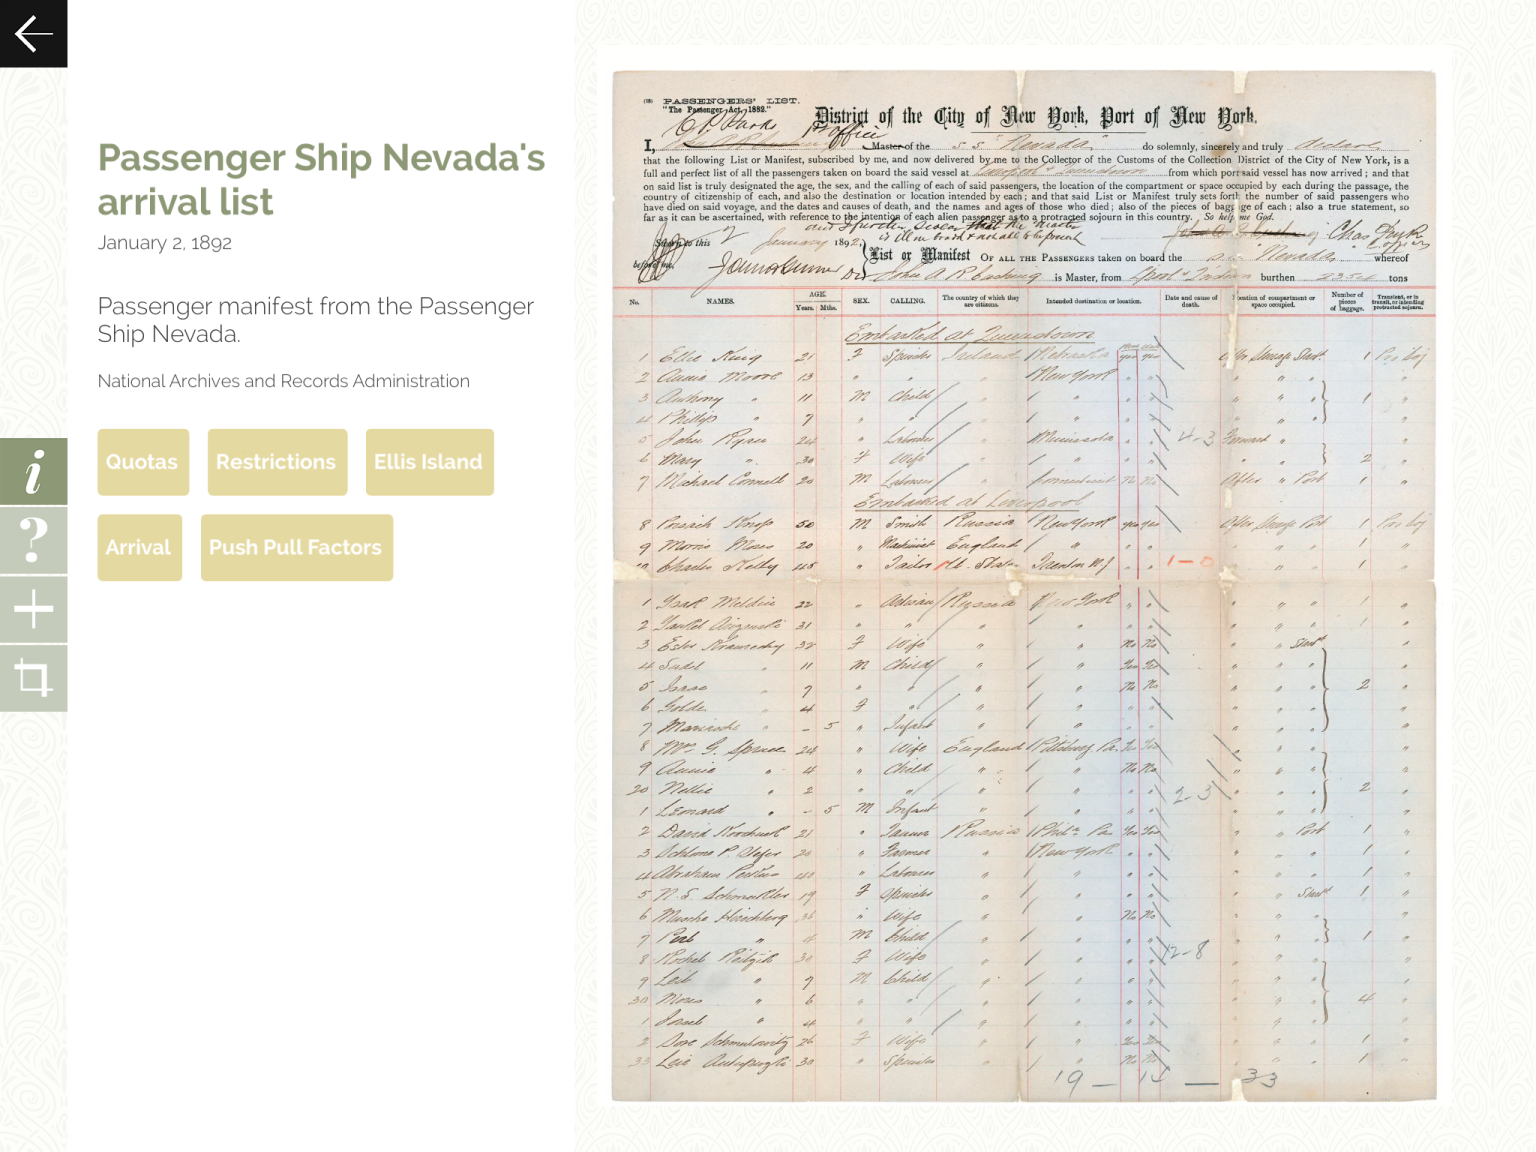 Passenger Ship Nevada's
arrival list
January 2, 1892
Passenger manifest from the Passenger
Ship Nevada.
National Archives and Records Administration
Quotas
Restrictions
Ellis Island
Arrival
Push Pull Factors
PASSENGERS' LIST.
"The Passenger Act, 1882."
District of the City of New York, Port of New York.
I, Master of the S.S. "Nevada" do solemnly, sincerely and truly declare
that the following List or Manifest, subscribed by me, and now delivered by me to the Collector of the Customs of the Collection District of the City of New York, is a
full and perfect list of all the passengers taken on board the said vessel at Liverpool & Queenstown from which port said vessel has now arrived ; and that
on said list is truly designated the age, the sex, and the calling of each of said passengers, the location of the compartment or space occupied by each during the passage, the
country of citizenship of each, and also the destination or location intended by each ; and that said List or Manifest truly sets forth the number of said passengers who
have died on said voyage, and the dates and causes of death, and the names and ages of those who died ; also of the pieces of baggage of each ; also a true statement, so
far as it can be ascertained, with reference to the intention of each alien passenger as to a protracted sojourn in this country. So help me God.
Sworn to this January 1892,
before me,
List or Manifest OF ALL THE PASSENGERS taken on board the S.S. Nevada whereof
is Master, from burthen tons
No. NAMES. AGE. Years. Mths. SEX. CALLING. The country of which they are citizens. Intended destination or location. Date and cause of death. Location of compartment or space occupied. Number of pieces of baggage. Transient, or in transit, or intending protracted sojourn.
Embarked at Queenstown
1 Ellie King 21 F Spinster Ireland Nebraska yes yes 1
2 Annie Moore 13 " " " New York " "
3 Anthony " 11 M Child " " " " 1
4 Phillip " 7 " " " " " "
5 John Ryan 24 " Laborer " Minnesota " " 4-3 Forward "
6 Mary " 30 F Wife " " " " 2
7 Michael Connell 20 M Laborer " Connecticut No No After " Port 1
Embarked at Liverpool
8 50 M Smith Russia New York yes yes 1
9 Morris Moses 20 " Machinist England " " " 1
10 Charles Kelly 45 " Tailor U. States Trenton N.J " " 1-0 1
1 22 " Artisan Russia New York " "
2 31 " " " " " "
3 32 F Wife " " No No
4 11 M Child " " Yes Yes
5 Isaac " 7 " " " " No No 2
6 Golde " 4 F " " " " "
7 " - 5 " Infant " " " "
8 Mrs G. Spruce 24 " Wife England Pittsburg Pa. Yes Yes
9 Annie " 4 " Child " " No No
20 Nellie " 2 " " " " " " 2-3 2
1 Leonard " - 5 M Infant " " " "
2 David 21 " Tanner Russia Phila Pa Yes Yes Port 1
3 20 " Farmer " New York " " 1
4 Abraham 40 " Laborer " " " " 1
5 19 F Spinster " " " " 1
6 36 " Wife " " No No
7 " 4 M Child " " " " 1
8 30 F Wife " " " " 12-8
9 Leib " 7 M Child " " " "
30 Moses " 6 " " " " " " 4
1 Israel " 4 " " " " " "
2 26 F Wife " " Yes Yes 1
33 30 " Spinster " " No No 1
19 — 14 — 33